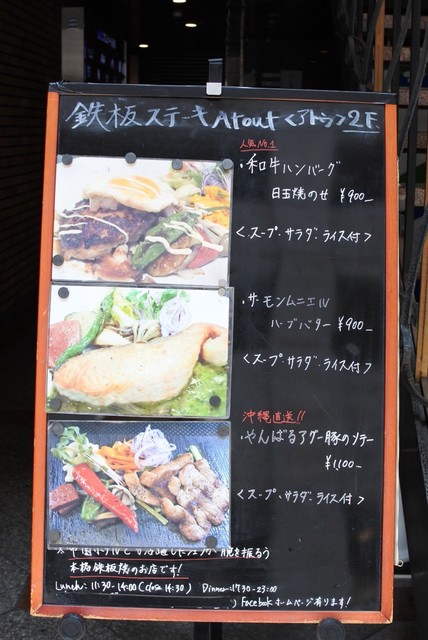 鉄板ステーキ Atout <アトゥ> 2F
人気No.1
・和牛ハンバーグ
目玉焼のせ ¥900-
<スープ・サラダ・ライス付>
・サーモンムニエル
ハーブバター ¥900-
<スープ・サラダ・ライス付>
沖縄直送!!
・やんばるアグー豚のソテー
¥1,100-
<スープ・サラダ・ライス付>
腕を振るう
本格鉄板焼のお店です!
Lunch: 11:30-14:00 (close 14:30) Dinner: 17:30-23:00
Facebok ホームページ有ります!